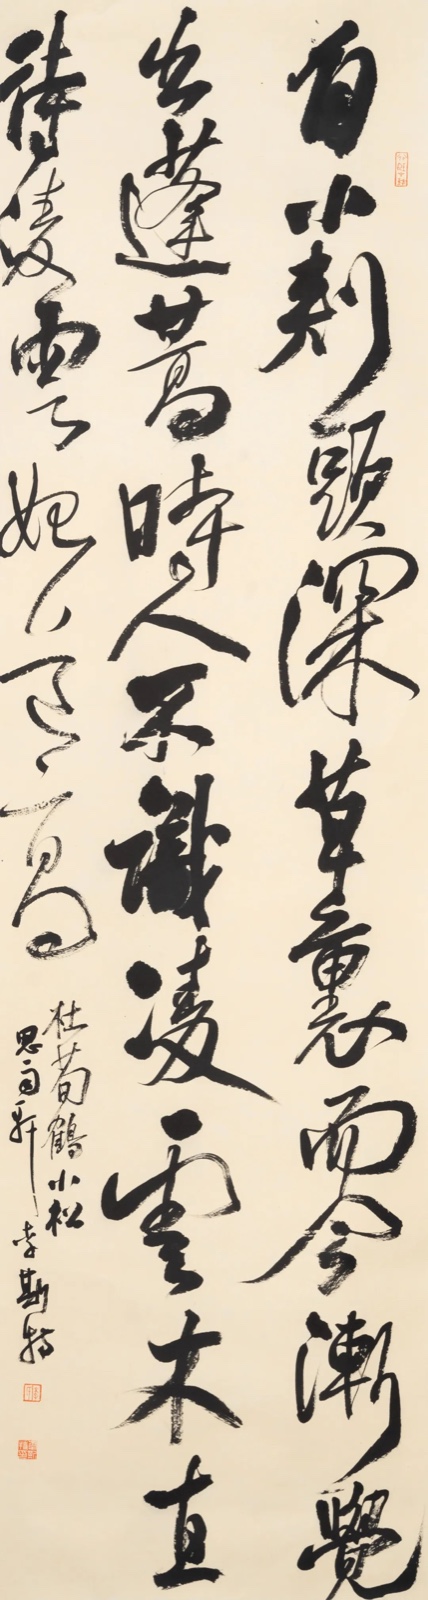 自小刺頭深草裏而今漸覺
出蓬蒿時人不識凌雲木直
待凌雲始道高
杜荀鶴小松
思雨軒 李斯特